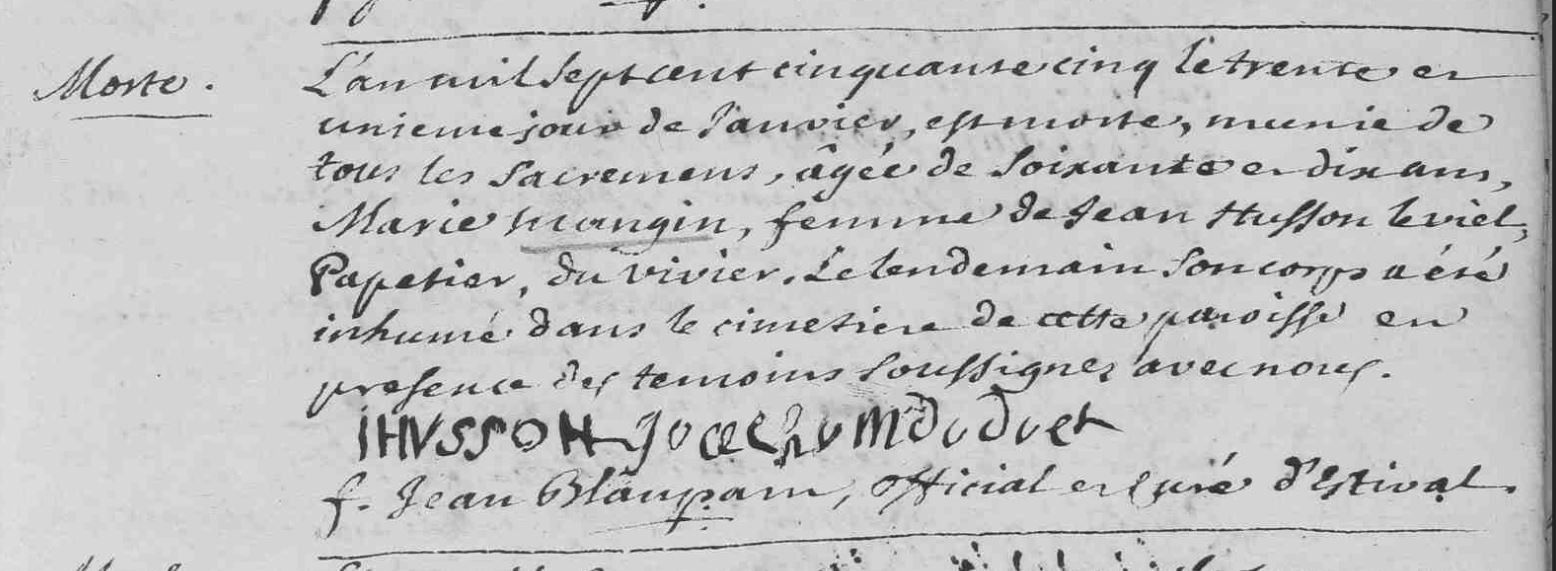 Morte.
L'an mil sept cent cinquante cinq le trente et
unieme jour de Janvier, est morte, munie de
tous les Sacremens, âgée de Soixante et dix ans,
Marie mangin, femme de Jean Husson le viel,
Papetier, du Vivier. Le lendemain Son corps a été
inhumé dans le cimetiere de cette paroisse en
presence des temoins Soussignez avec nous.
I HVSSON
f. Jean Blaupain, official et Curé d'Estival.